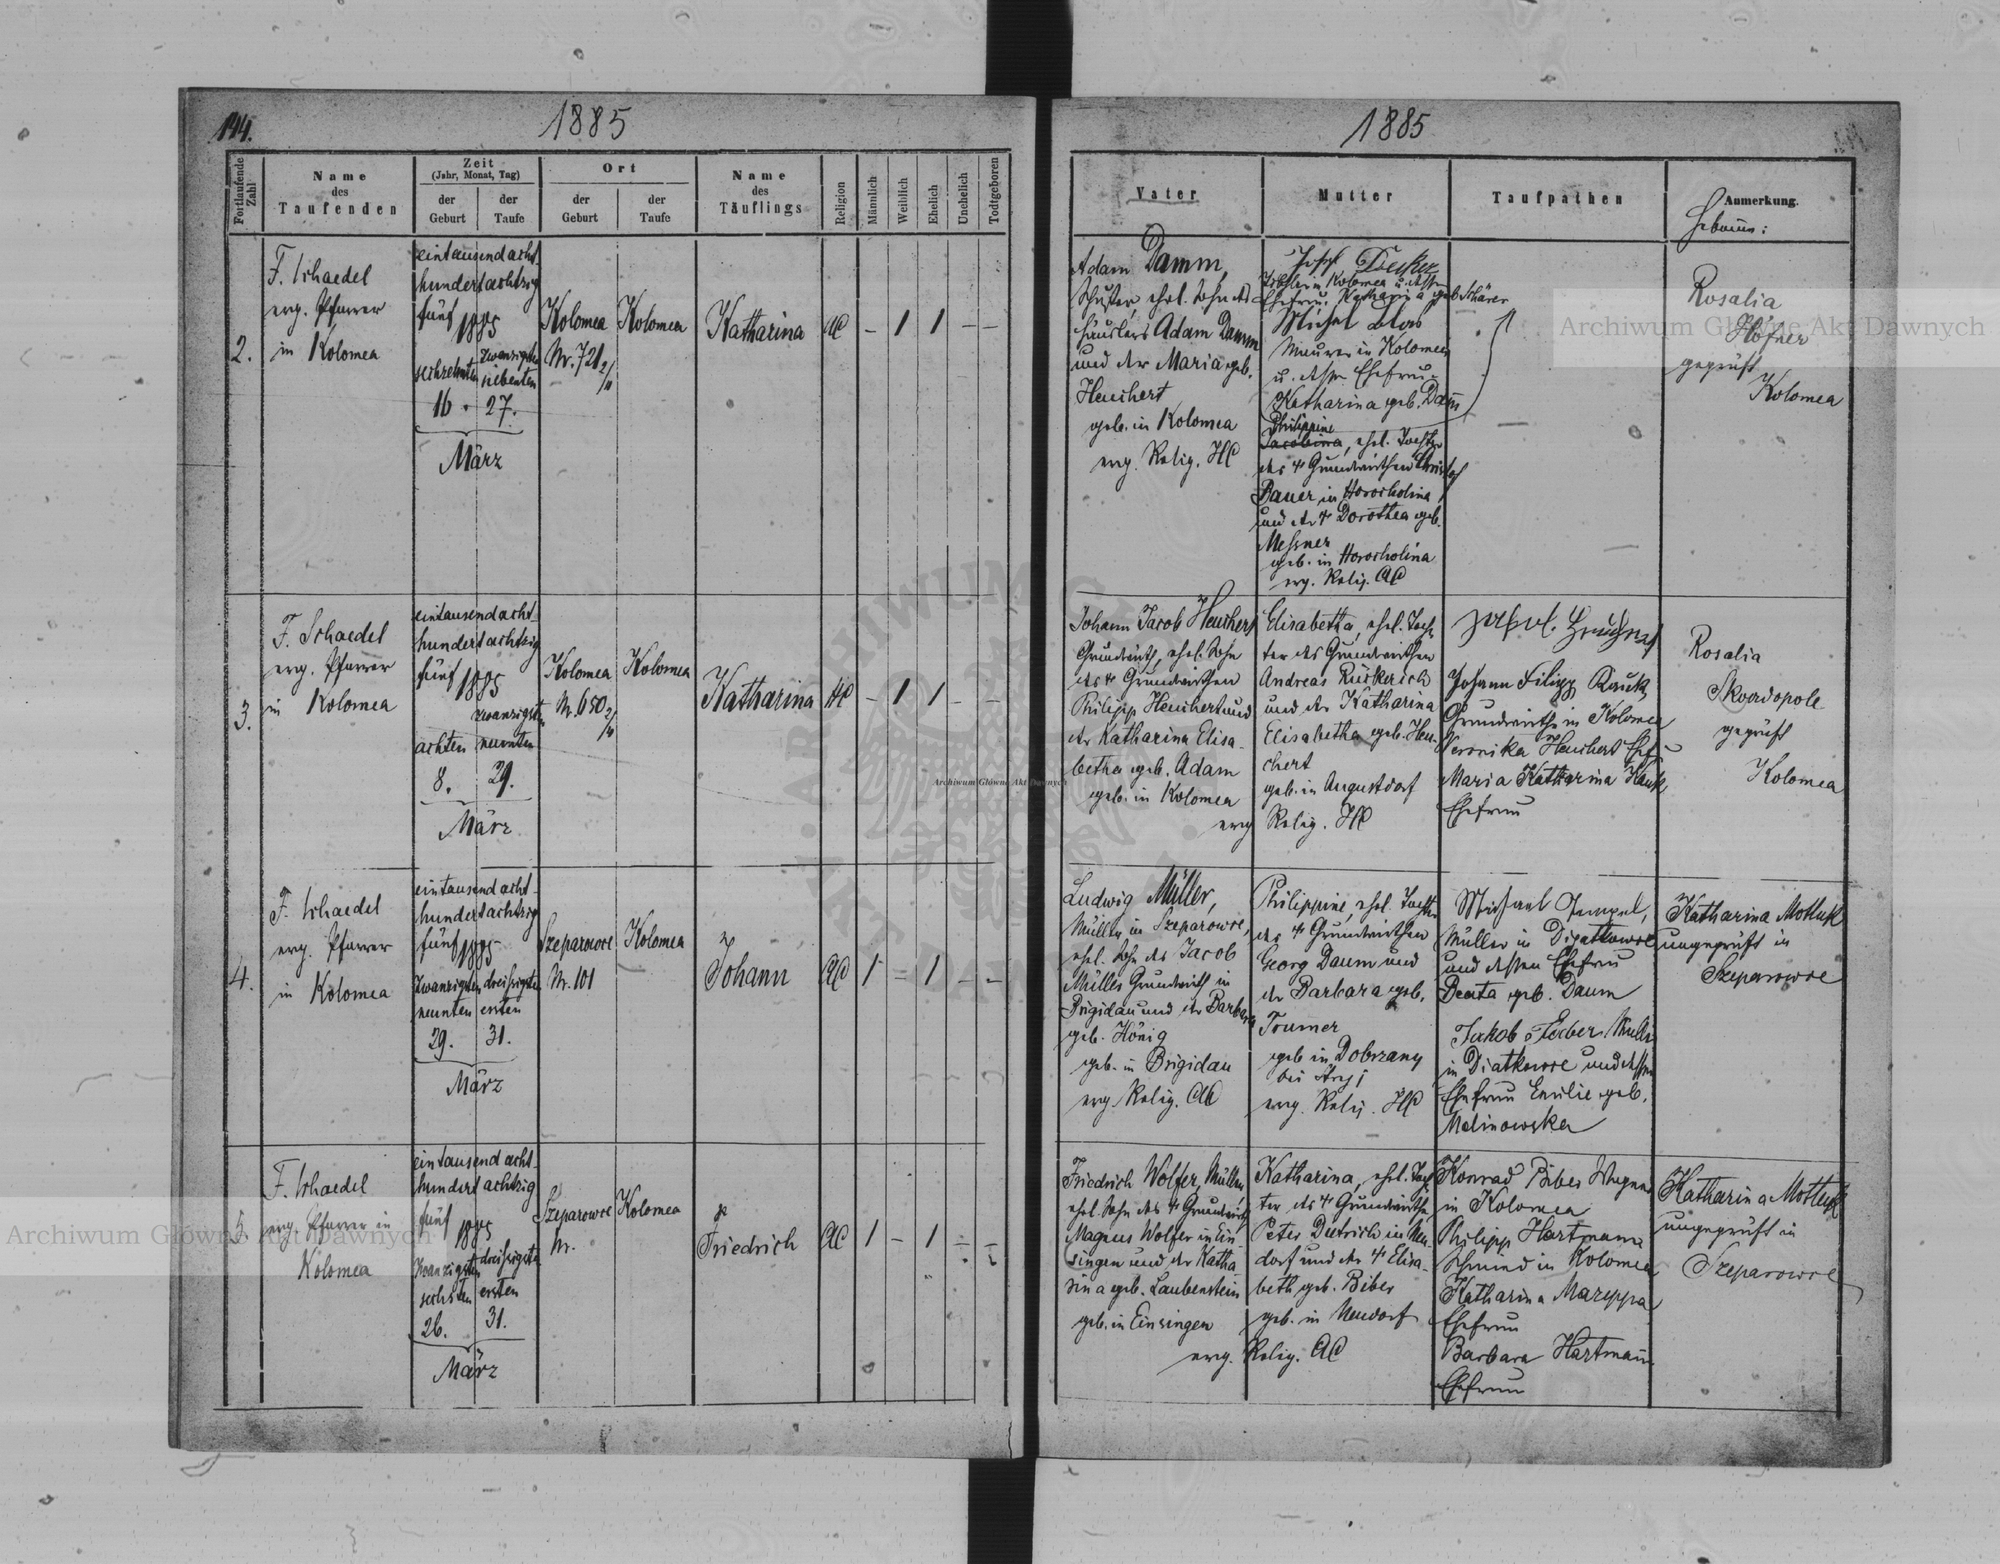 144.
1885
Fortlaufende Zahl
Name
des
Taufenden
Zeit
(Jahr, Monat, Tag)
der
Geburt
der
Taufe
Ort
der
Geburt
der
Taufe
Name
des
Täuflings
Religion
Männlich
Weiblich
Ehelich
Unehelich
Todtgeboren
2.
F. Schaedel
evg. Pfarrer
in Kolomea
eintausend acht-
hundert achtzig
fünf 1885
sechzehnten
zwanzigsten
siebenten
16. 27.
März
Kolomea
Nr. 721 2/4
Kolomea
Katharina
AC
– 1 1 – –
3.
F. Schaedel
evg. Pfarrer
in Kolomea
eintausend acht-
hundert achtzig
fünf 1885
achten
zwanzigsten
neunten
8. 29.
März
Kolomea
Nr. 650 2/4
Kolomea
Katharina
HC
– 1 1 – –
4.
F. Schaedel
evg. Pfarrer
in Kolomea
eintausend acht-
hundert achtzig
fünf 1885
zwanzigsten dreißigsten
neunten ersten
29. 31.
März
Szeparowce
Nr. 101
Kolomea
Johann
AC
1 – 1 – –
5.
F. Schaedel
evg. Pfarrer in
Kolomea
eintausend acht-
hundert achtzig
fünf 1885
zwanzigsten dreißigsten
sechsten ersten
26. 31.
März
Szeparowce
Nr.
Kolomea
Friedrich
AC
1 – 1 – –
1885
Vater
Mutter
Taufpathen
Anmerkung.
Hebamme:
Adam Damm,
ehel. Sohn des
Häuslers Adam Damm
und der Maria geb.
Heuchert
geb. in Kolomea
evg. Relig. HC
in Kolomea u. dessen
Ehefrau Katharina geb. Schärer
Maurer in Kolomea
u. dessen Ehefrau
Katharina geb. Damm
Philippine
Jacobina, ehel. Tochter
des † Grundwirthen Christof
Bauer in Horocholina
und der † Dorothea geb.
Messner
geb. in Horocholina
evg. Relig. AC
Rosalia
Höfner
geprüft
Kolomea
Johann Jacob Heuchert
Grundwirth, ehel. Sohn
des † Grundwirthen
Philipp Heuchert und
der Katharina Elisa-
betha geb. Adam
geb. in Kolomea
evg
Elisabetha, ehel. Toch-
ter des Grundwirthen
Andreas Rückerich
und der Katharina
Elisabetha geb. Heu-
chert
geb. in Augustdorf
Relig. HC
Johann Filipp Rauch,
Grundwirth in Kolomea
Veronika Heuchert Ehefrau
Maria Katharina Hauk
Ehefrau
Rosalia
Skordopole
geprüft
Kolomea
Ludwig Müller,
Müller in Szeparowce,
ehel. Sohn des Jacob
Müller Grundwirth in
Brigidau und der Barbara
geb. König
geb. in Brigidau
evg. Relig. AC
Philippine, ehel. Tochter
des † Grundwirthen
Georg Daum und
der Barbara geb.
Trumer
geb. in Dobrzany
bei Stryj
evg. Relig. HC
Michael Tempel,
Müller in Diatkowce
und dessen Ehefrau
Beata geb. Daum
Jakob Faber Müller
in Diatkowce und dessen
Ehefrau Emilie geb.
Malinowska
Katharina Motluk
ungeprüft in
Szeparowce
Friedrich Wolfer, Müller
ehel. Sohn des † Grundwirth
Magnus Wolfer in Ein-
singen und der Katha-
rina geb. Laubenstein
geb. in Einsingen
evg.
Katharina, ehel. Toch-
ter des † Grundwirthen
Peter Dietrich in Neu-
dorf und der † Elisa-
beth geb. Biber
geb. in Neudorf
Relig. AC
Konrad Biber Wagner
in Kolomea
Philipp Hartmann
Schmied in Kolomea
Katharina Mareppa
Ehefrau
Barbara Hartmann
Ehefrau
Katharina Motluk
ungeprüft in
Szeparowce
Archiwum Główne Akt Dawnych
Archiwum Główne Akt Dawnych
Archiwum Główne Akt Dawnych